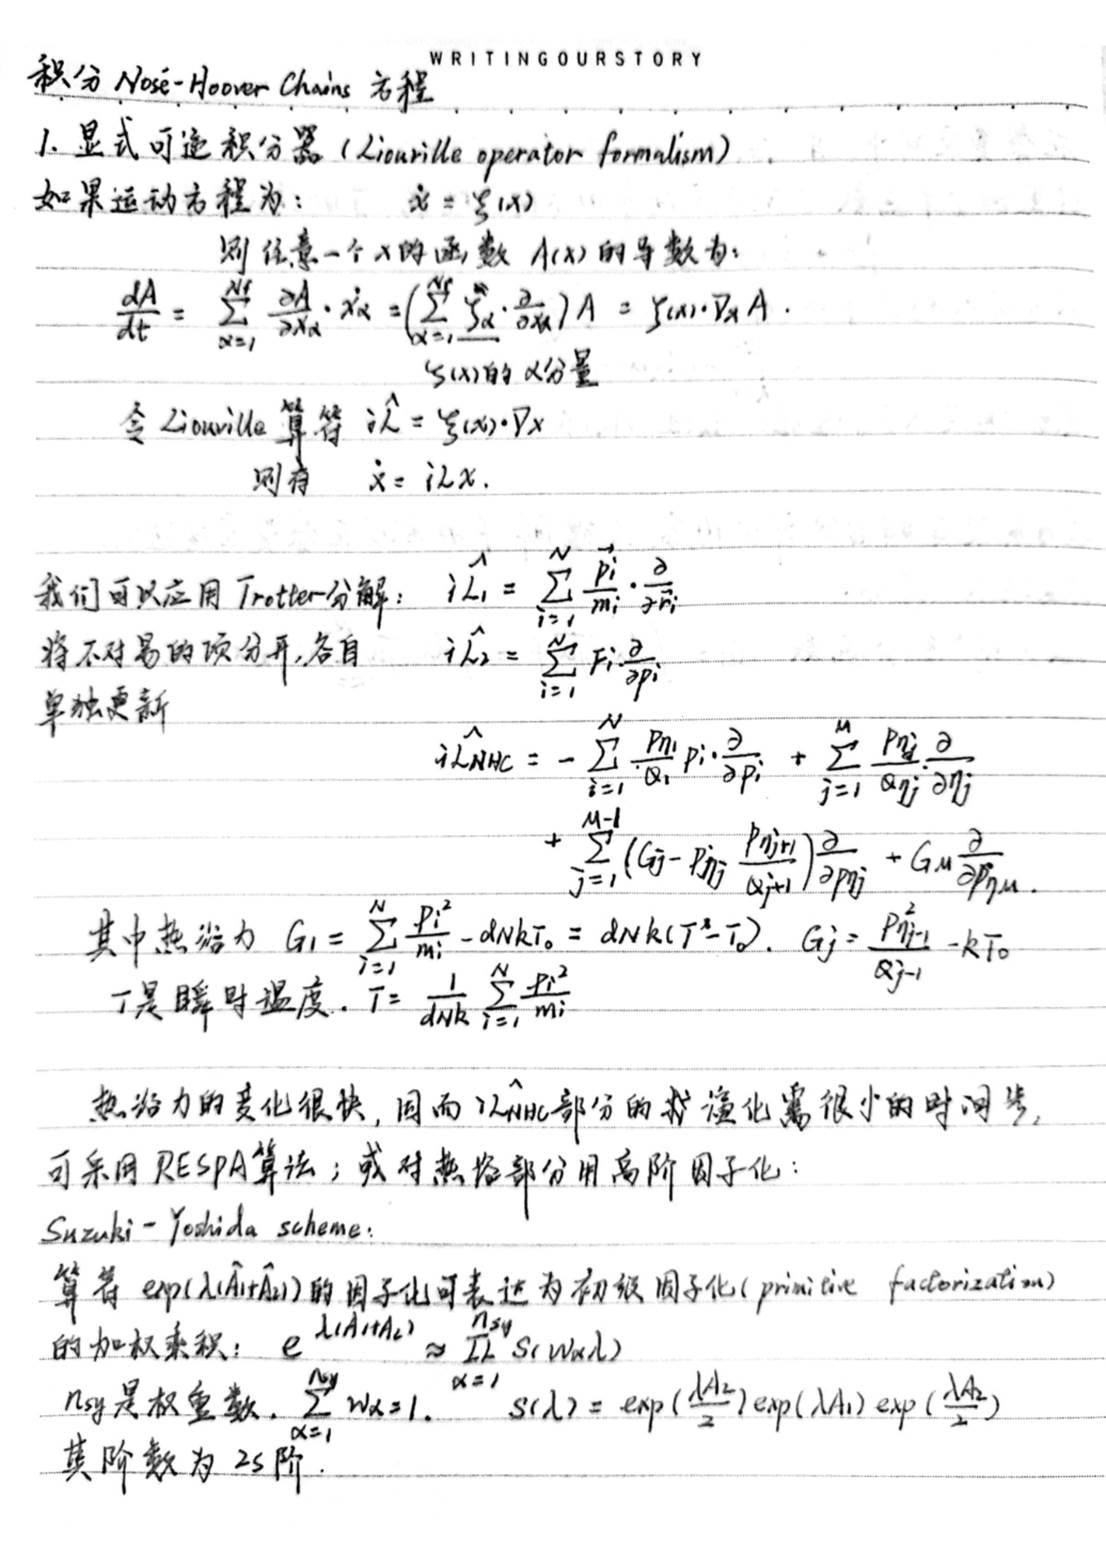 WRITINGOURSTORY
积分 Nosé-Hoover Chains 方程
1. 显式可逆积分器 (Liouville operator formalism)
如果运动方程为: ẋ = ξ(x)
则任意一个x的函数 A(x) 的导数为:
dA/dt = Σ_{α=1}^{Nf} ∂A/∂xα · ẋα = (Σ_{α=1}^{Nf} ξα · ∂/∂xα) A = ξ(x)·∇x A.
ξ(x)的α分量
令 Liouville 算符 iL̂ = ξ(x)·∇x
则有 ẋ = iLx.
我们可以应用 Trotter分解: iL̂₁ = Σ_{i=1}^{N} p⃗i/mi · ∂/∂r⃗i
将不对易的项分开,各自 iL̂₂ = Σ_{i=1}^{N} Fi · ∂/∂pi
单独更新
iL̂NHC = - Σ_{i=1}^{N} pη₁/Q₁ pi · ∂/∂pi + Σ_{j=1}^{M} pηj/Qηj · ∂/∂ηj
+ Σ_{j=1}^{M-1} (Gj - pηj pηj+1/Qj+1) ∂/∂pηj + GM ∂/∂pηM.
其中热浴力 G₁ = Σ_{i=1}^{N} pi²/mi - dNkT₀ = dNk(T - T₀). Gj = pηj-1²/Qj-1 - kT₀
T是瞬时温度. T = 1/dNk Σ_{i=1}^{N} pi²/mi
热浴力的变化很快, 因而 iL̂NHC部分的演化需很小的时间步,
可采用 RESPA算法; 或对热浴部分用高阶因子化:
Suzuki-Yoshida scheme:
算符 exp(λ(Â₁+Â₂)) 的因子化可表达为初级因子化 (primitive factorization)
的加权乘积: e^{λ(A₁+A₂)} ≈ Π_{α=1}^{nsy} S(wαλ)
nsy是权重数. Σ_{α=1}^{nsy} wα=1. S(λ) = exp(λA₂/2) exp(λA₁) exp(λA₂/2)
其阶数为 2s 阶.